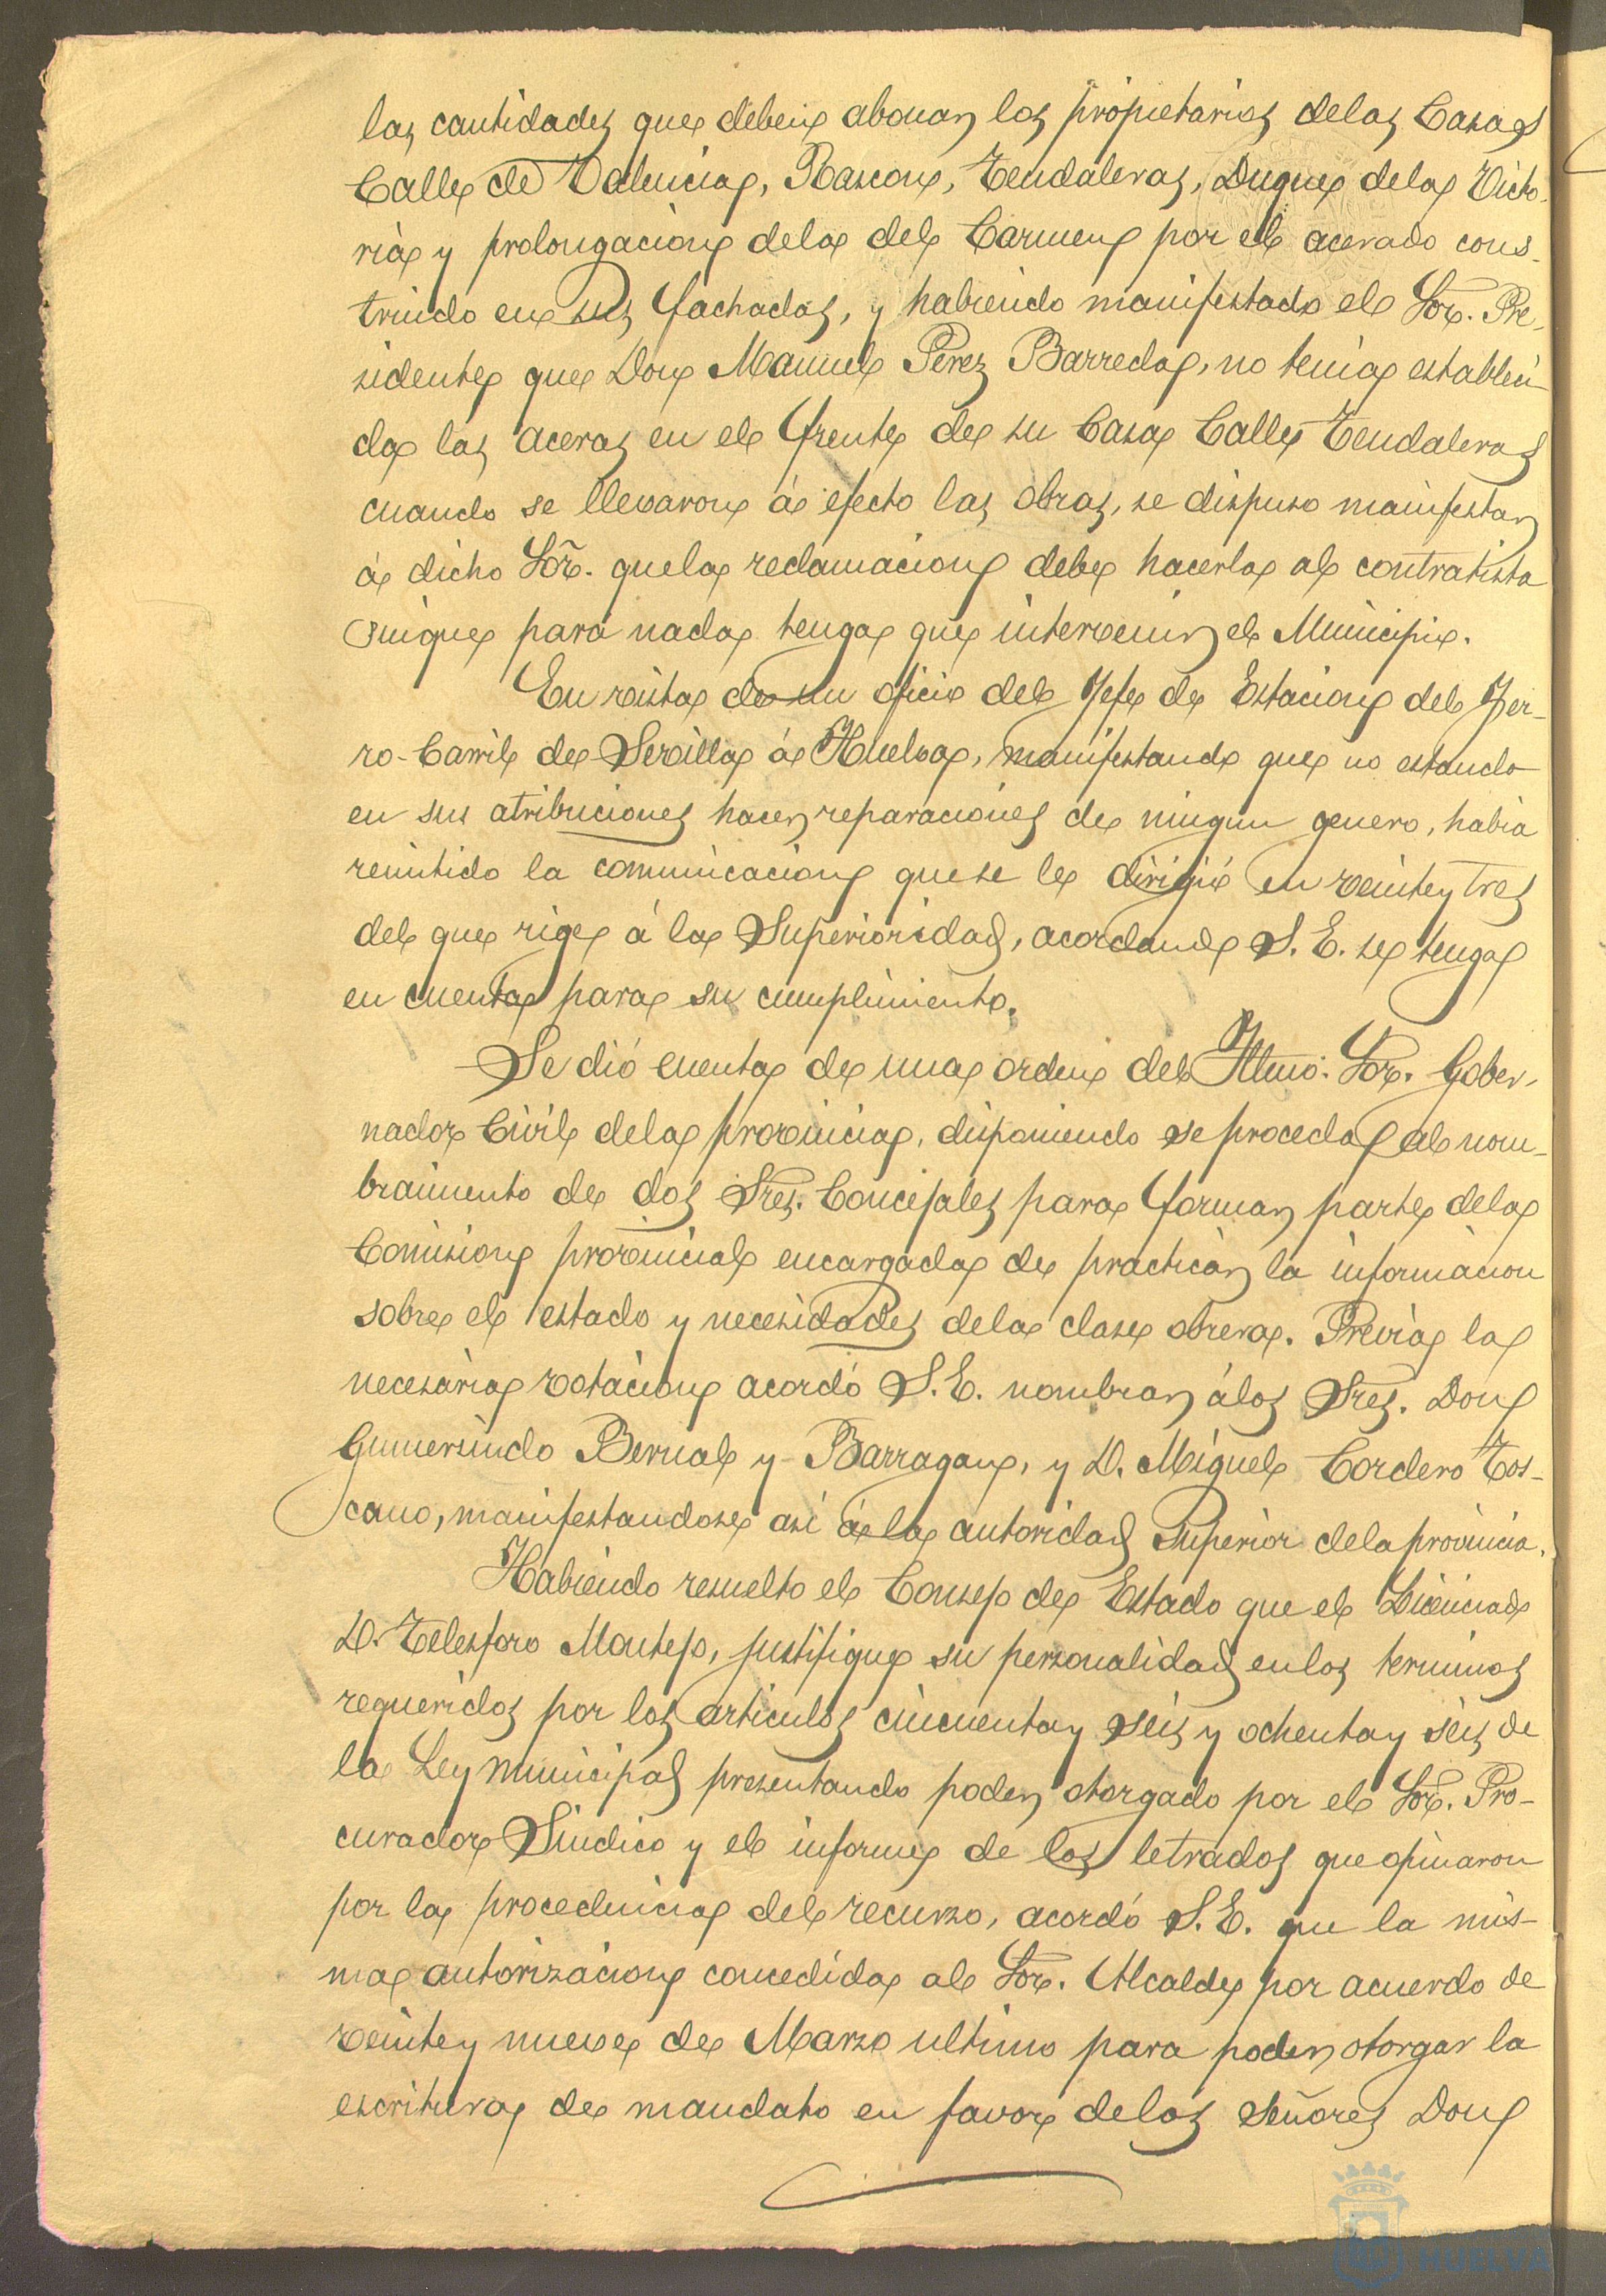 las cantidades que deben abonar los propietarios delas Casas
Calle de Valencia, Rascon, Tendaleras, Duque dela Victo-
ria y prolongacion dela del Carmen por el acerado cons-
truido en sus fachadas, y habiendo manifestado el Sor. Pre-
sidente que Don Manuel Perez Barreda, no tenia estableci-
da las aceras en el frente de su Casa Calle Tendaleras
cuando se llevaron á efecto las obras, se dispuso manifestar
á dicho Sor. quela reclamacion debe hacerla al contratista
sinque para nada tenga que intervenir el Municipio.
En vista de un oficio del Jefe de Estacion del Fer-
ro-Carril de Sevilla á Huelva, manifestando que no estando
en sus atribuciones hacer reparaciones de ningun genero, habia
remitido la comunicacion quese le dirigió en veintey tres
del que rige á la Superioridad, acordando S. E. se tenga
en cuenta para su cumplimiento.
Se dió cuenta de una orden del Iltmo. Sor. Gober-
nador Civil dela provincia, disponiendo se proceda al nom-
bramiento de dos Sres. Concejales para formar parte dela
Comision provincial encargada de practicar la informacion
sobre el estado y necesidades dela clase obrera. Previa la
necesaria votacion acordó S. E. nombrar álos Sres. Don
Gumersindo Bernal y Barragan, y D. Miguel Cordero Tos-
cano, manifestandose asi á la autoridad Superior dela provincia.
Habiendo resuelto el Consejo de Estado que el Licenciado
D. Telesforo Montejo, justifique su personalidad enlos terminos
requeridos por los articulos cincuentay seis y ochentay seis de
la Ley municipal presentando poder otorgado por el Sor. Pro-
curador Sindico y el informe de los letrados que opinaron
por la procedencia del recurso, acordó S. E. que la mis-
ma autorizacion concedida al Sor. Alcalde por acuerdo de
veintey nueve de Marzo ultimo para poder otorgar la
escritura de mandato en favor delos Señores Don
HUELVA